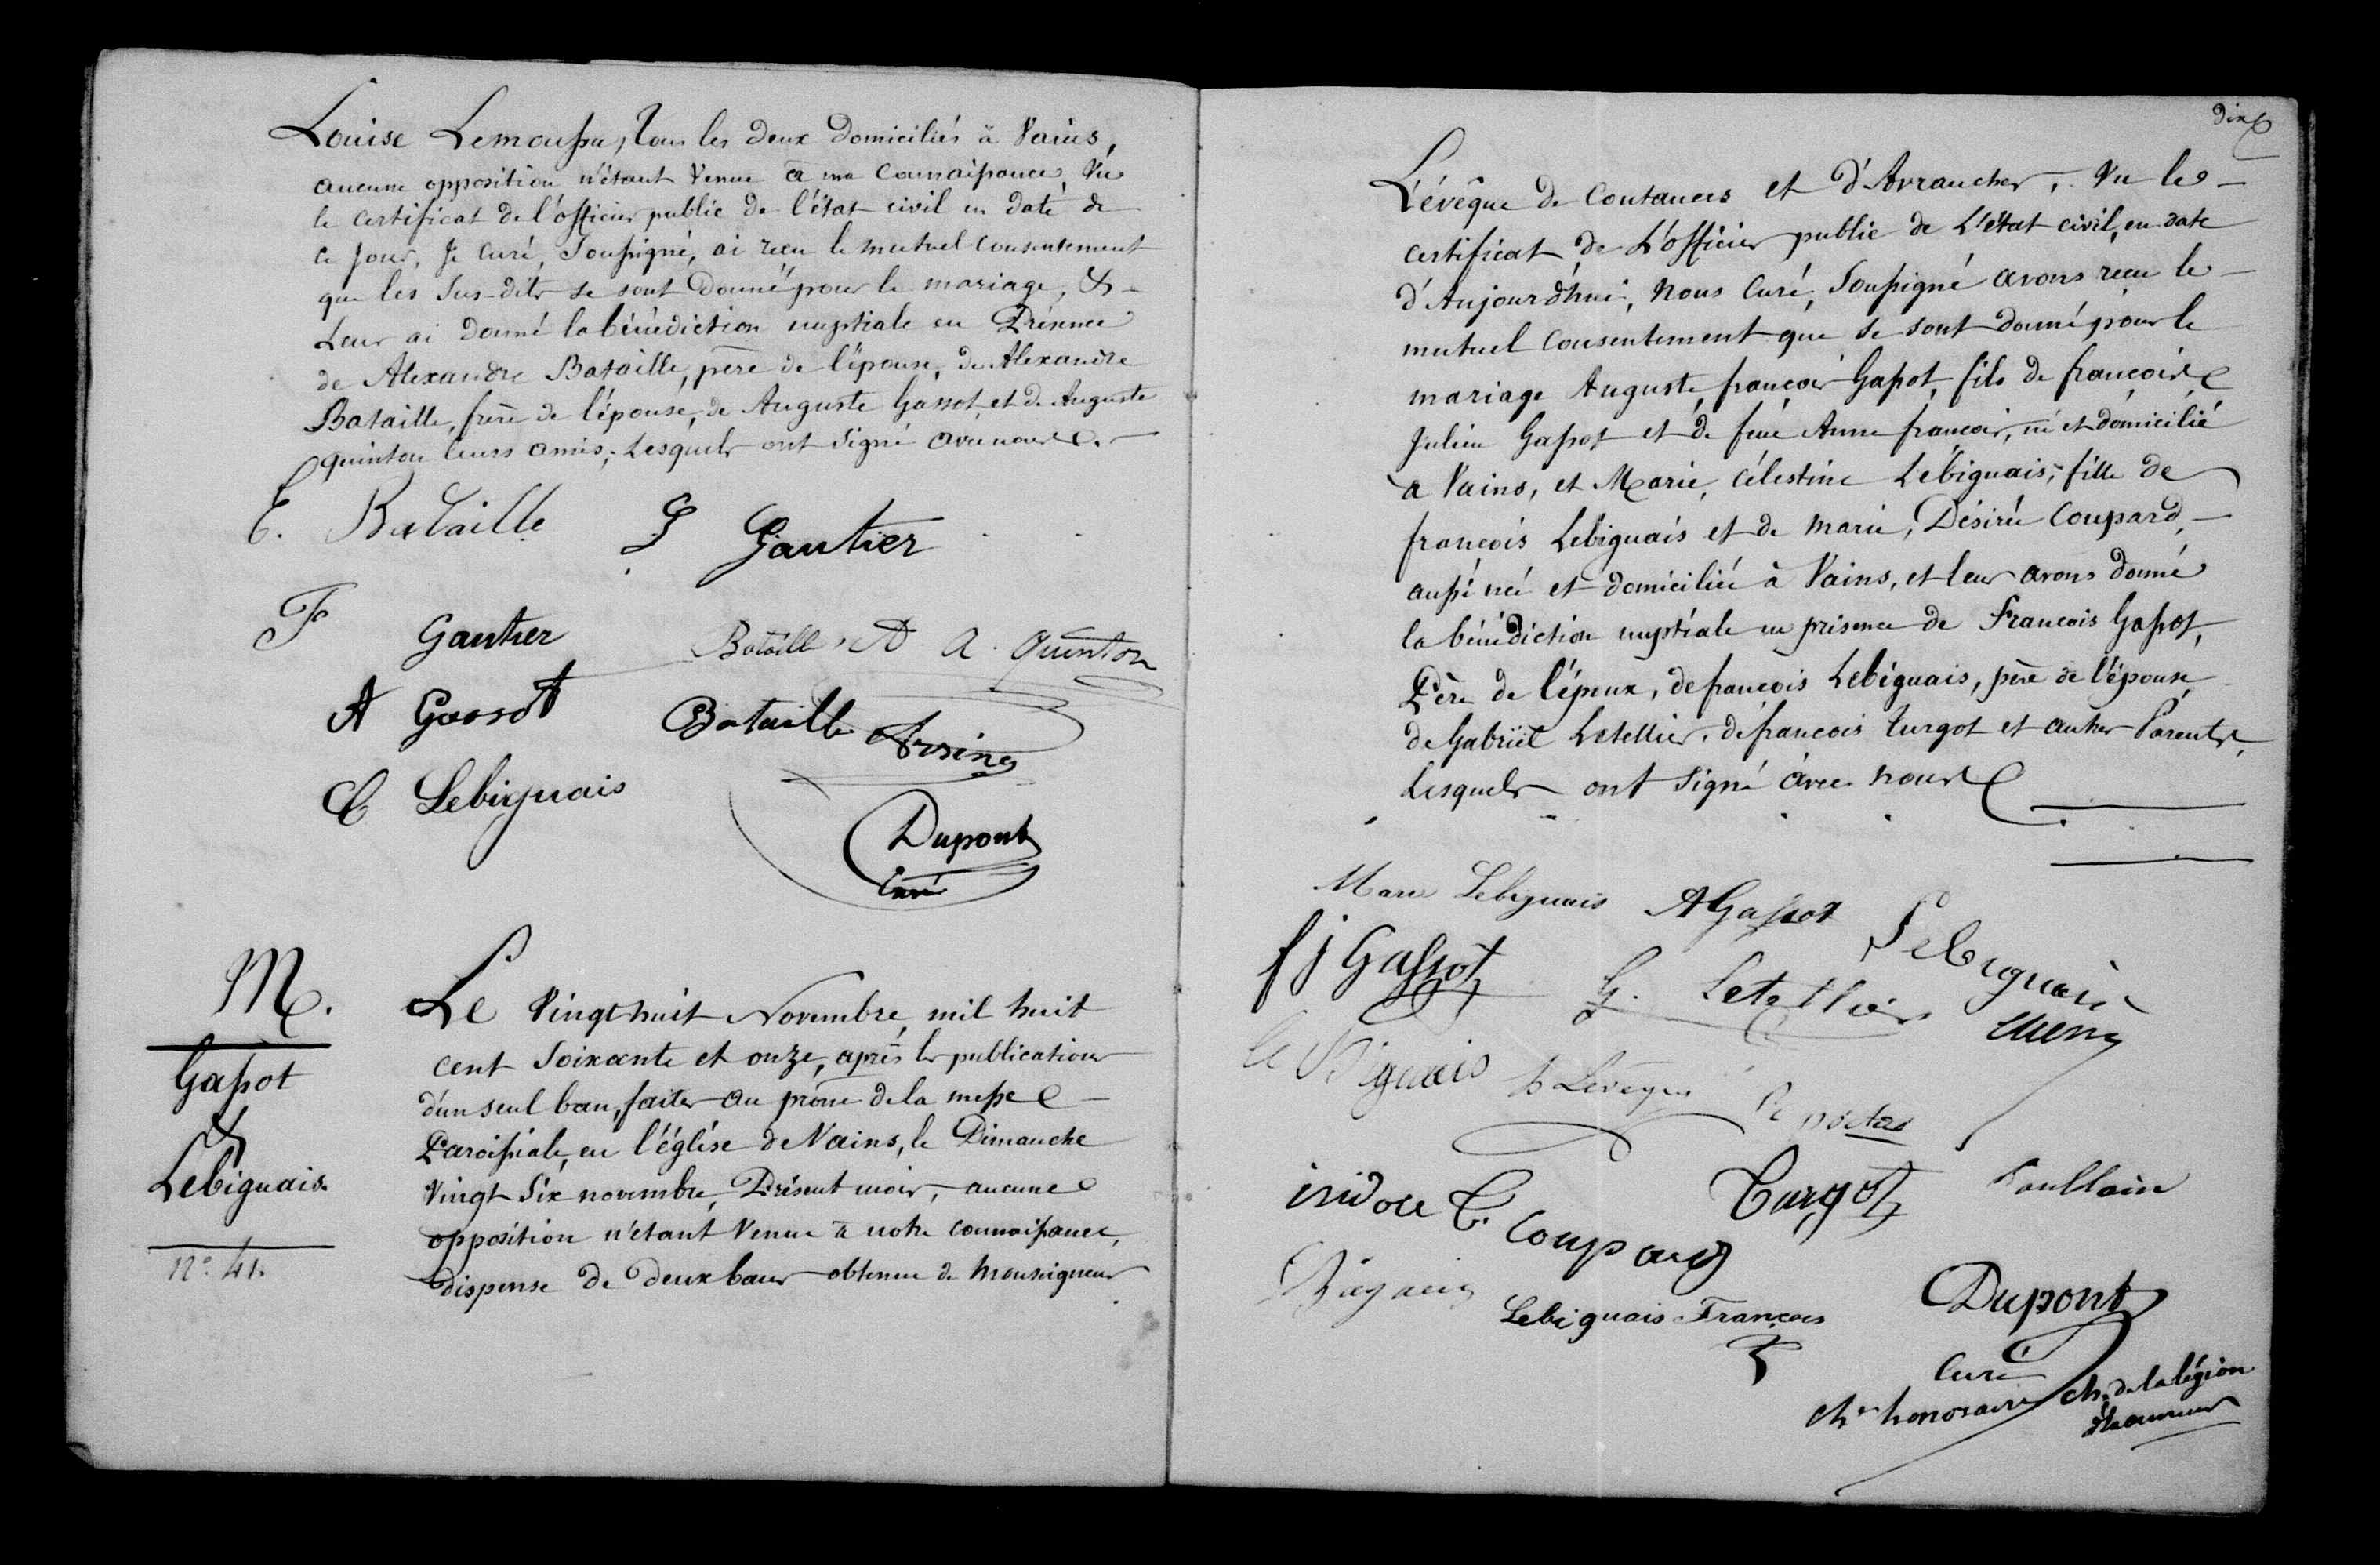 Louise Lemoussu, tous les deux domiciliés à Vains,
aucune opposition n'étant venue à ma connaissance, Vu
le certificat de l'officier public de l'état civil en date de
ce jour, Je curé, Soussigné, ai reçu le mutuel consentement
que les sus-dits se sont donné pour le mariage, &
Leur ai donné la bénédiction nuptiale en Présence
de Alexandre Bataille, père de l'épouse, de Alexandre
Bataille, frère de l'épouse, de Auguste Gassot, et de Auguste
quinton leurs amis, Lesquels ont signé avec nous.
E. Bataille L Gautier
F Gautier Bataille A A. Quinton
A Gassot Bataille Arsine
C Lebiguais
Dupont
Curé
M.
Gassot
&
Lebiguais.
N° 41.
Le Vingt huit Novembre, mil huit
cent Soixante et onze, après les publications
d'un seul ban, faites au prône de la messe
Paroissiale, en l'église de Vains, le Dimanche
Vingt Six novembre, Présent mois, aucune
opposition n'étant venue à notre connaissance,
dispense de deux bans obtenue de Monseigneur
dix
L'évêque de Coutances et d'Avranches, Vu le
certificat de L'officier public de L'état civil, en date
d'Aujourd'hui, Nous Curé, Soussigné avons reçu le
mutuel consentement que se sont donné pour le
mariage Auguste, françois Gassot, fils de françois
Julien Gassot et de feue Anne françois, né et domicilié
à Vains, et Marie, Célestine Lebiguais, fille de
françois Lebiguais et de Marie, Désirée Coupard,
aussi née et domiciliée à Vains, et leur avons donné
la bénédiction nuptiale en présence de François Gassot,
Père de l'époux, de françois Lebiguais, père de l'épouse,
de Gabriel Letellier, de françois Turgot et autres Parents,
Lesquels ont signé avec nous
Marie Lebiguais AGassot Lebiguais
fj Gassot G. Letellier
le Biguais Leveque
isidore C. Coupard Turgot Poullain
Lebiguais François
Dupont
Curé
ch. honoraire ch. de la légion
d'honneur